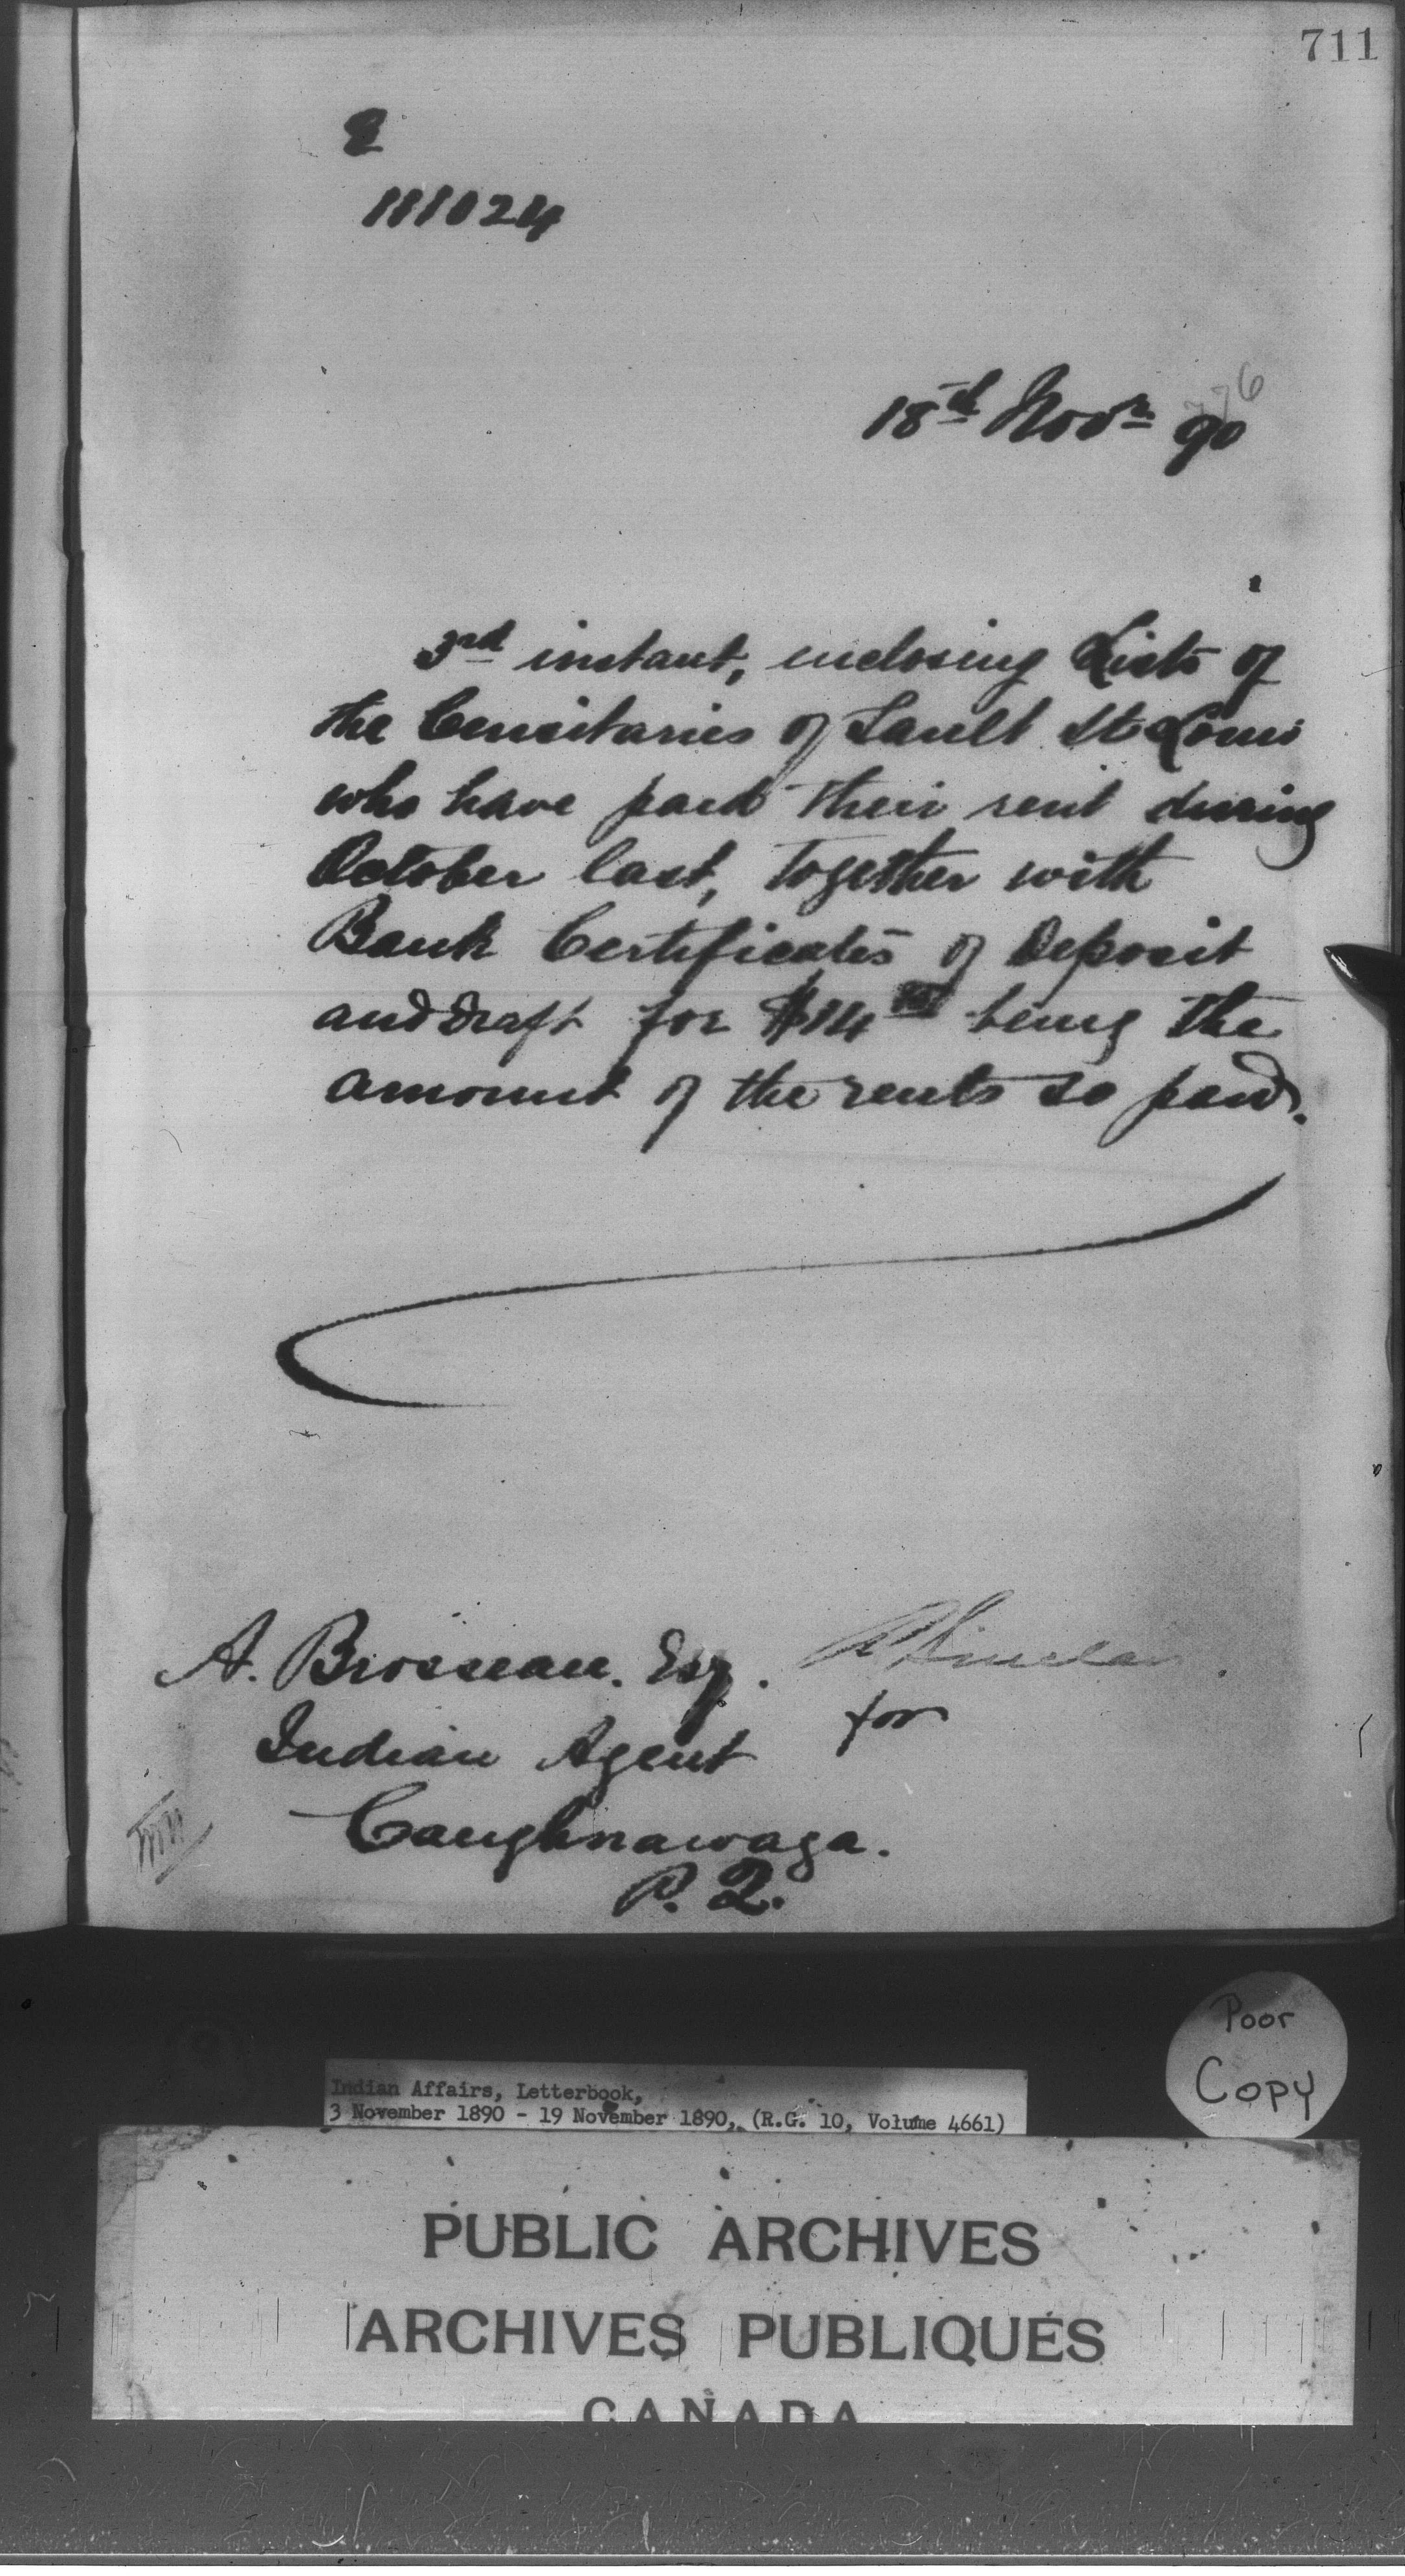 711
111024
18th Novr 90
3rd instant, enclosing Lists of
the Censitaires of Sault St Louis
who have paid their rent during
October last, together with
Bank Certificates of Deposit
and draft for $14 being the
amount of the rents so paid.
A. Brosseau. Esq.
for
Indian Agent
Caughnawaga.
P. Q.
Poor
Copy
Indian Affairs, Letterbook,
3 November 1890 - 19 November 1890, (R.G. 10, Volume 4661)
PUBLIC ARCHIVES
ARCHIVES PUBLIQUES
CANADA